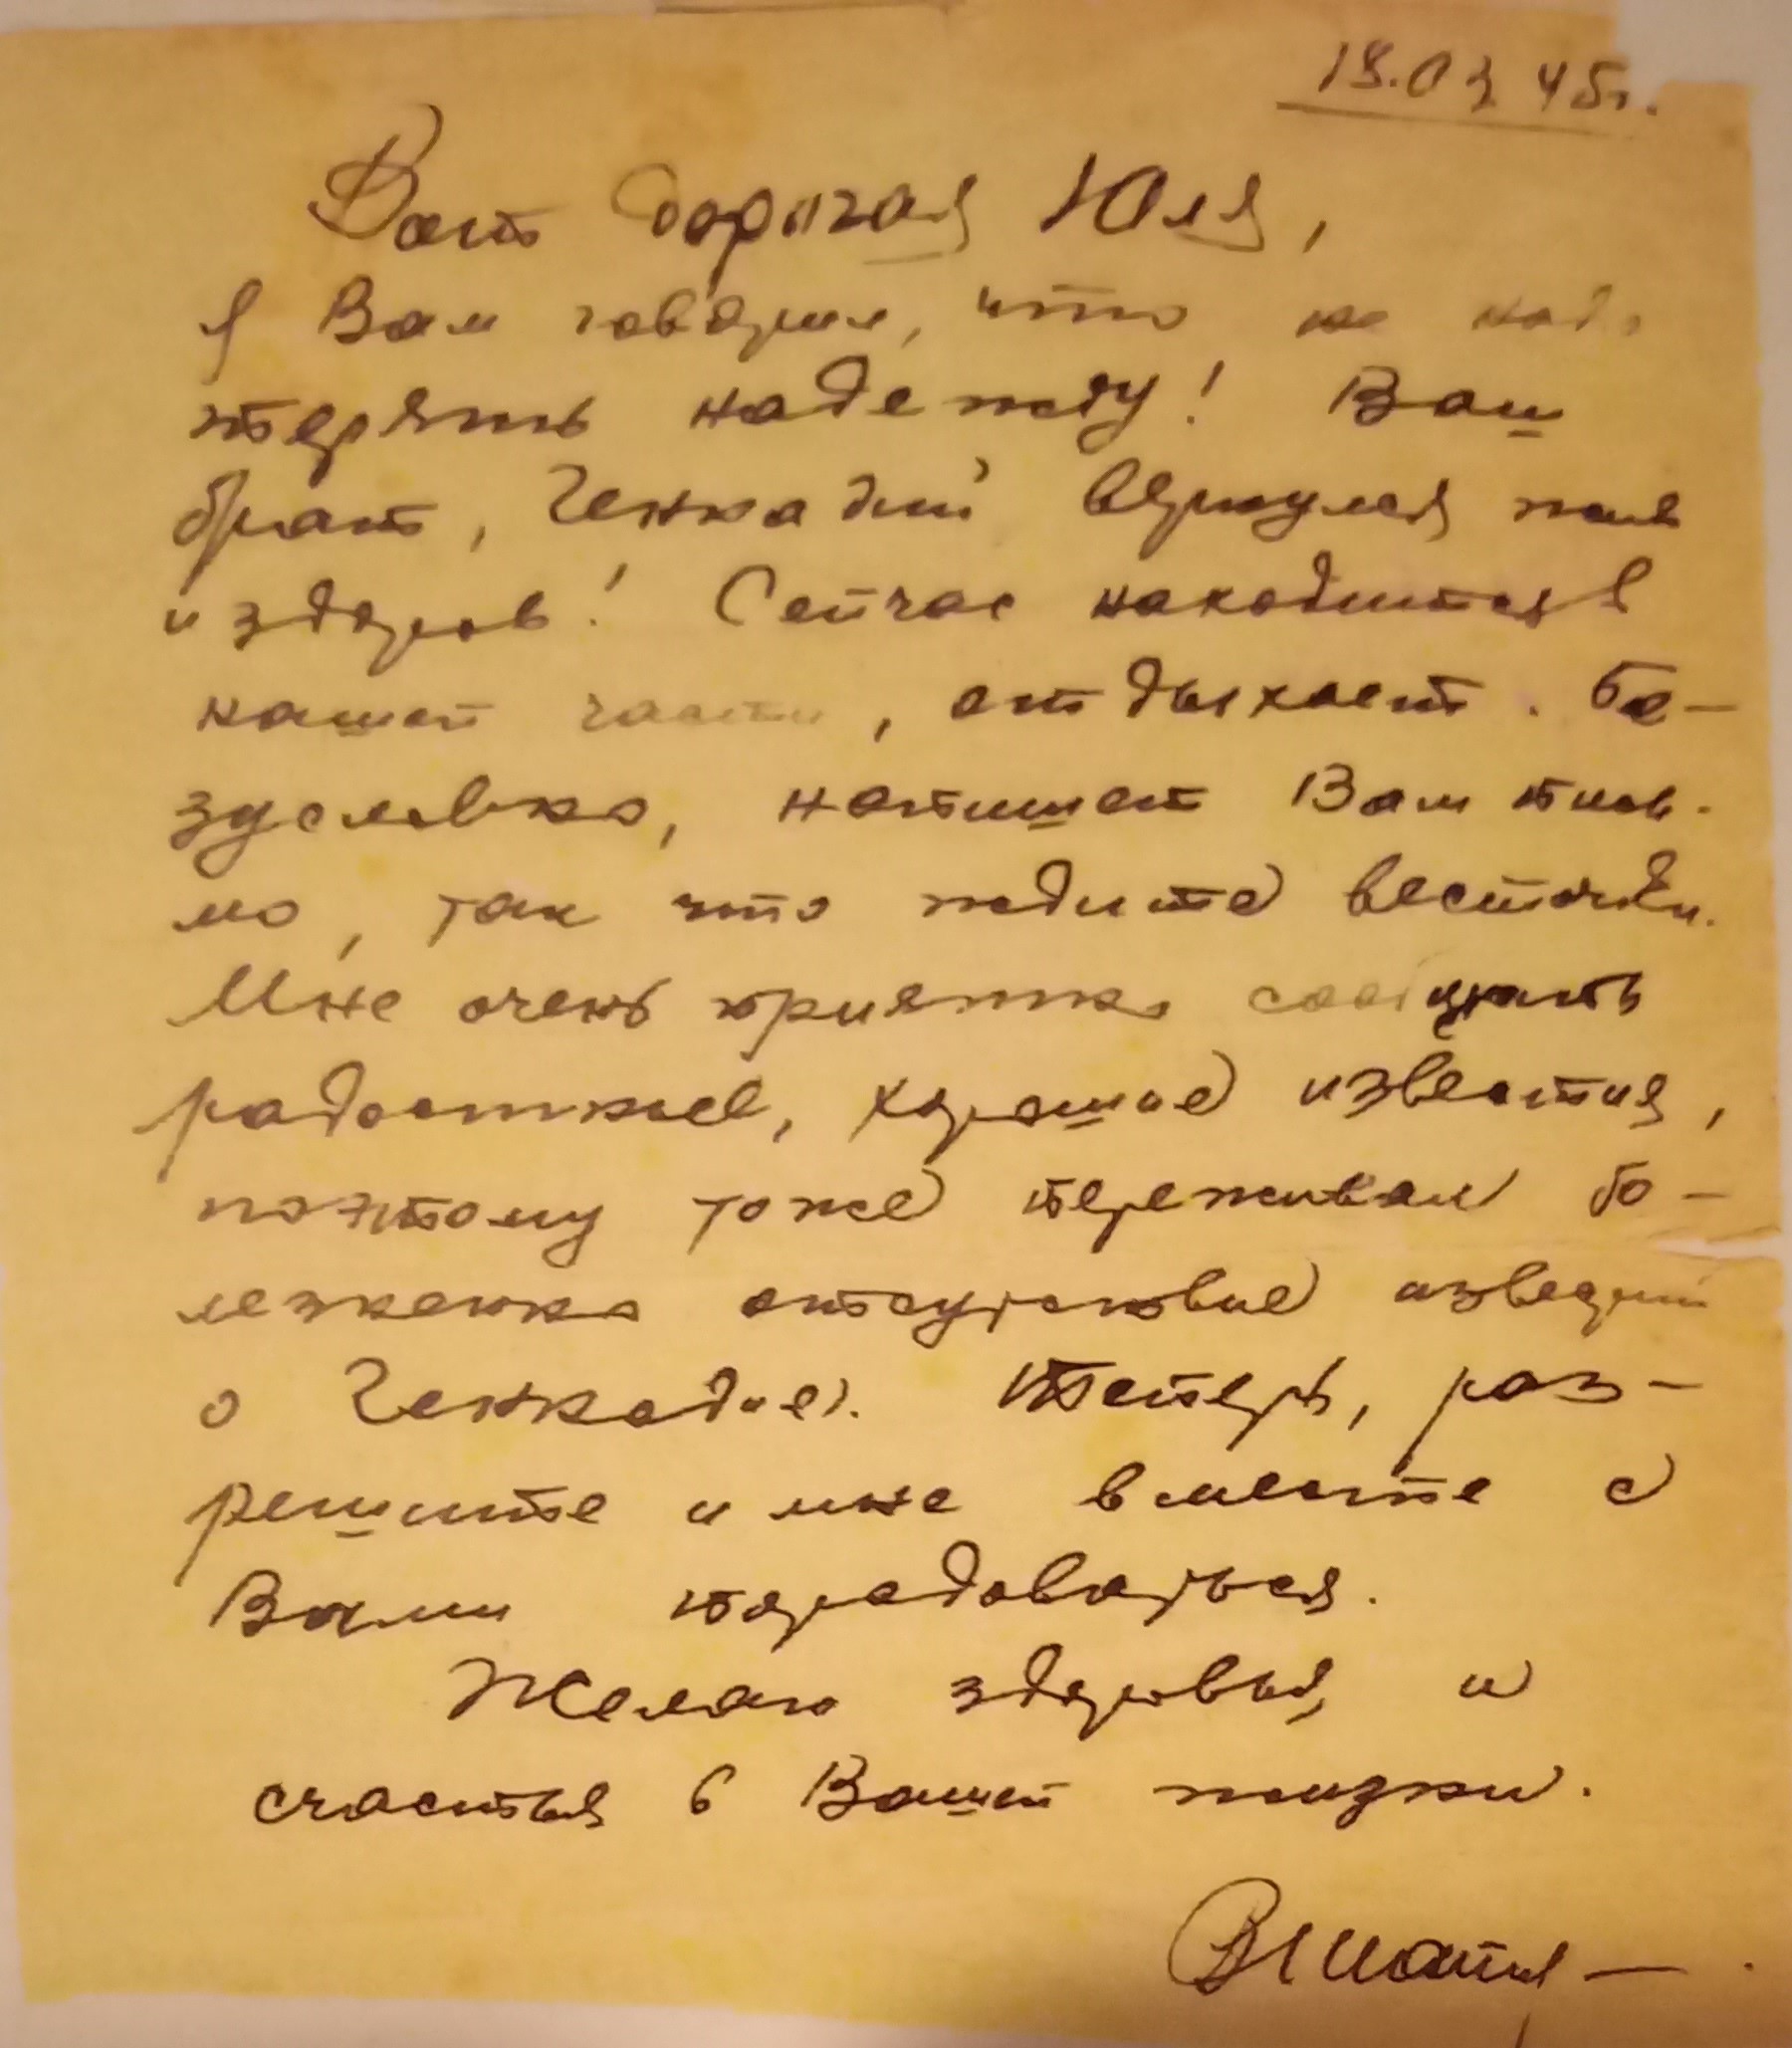 18.03 45г.
Вот дорогая Юля,
я Вам говорил, что не надо
терять надежду! Ваш
брат, Геннадий вернулся жив
и здоров! Сейчас находится в
нашей части, отдыхает. Бе-
зусловно, напишет Вам пись-
мо, так что ждите весточки.
Мне очень приятно сообщать
радостные, хорошие известия,
поэтому тоже переживал бо-
лезненно отсутствие известий
о Геннадие. Теперь, раз-
решите и мне вместе с
Вами порадоваться.
Желаю здоровья и
счастья в Вашей жизни.